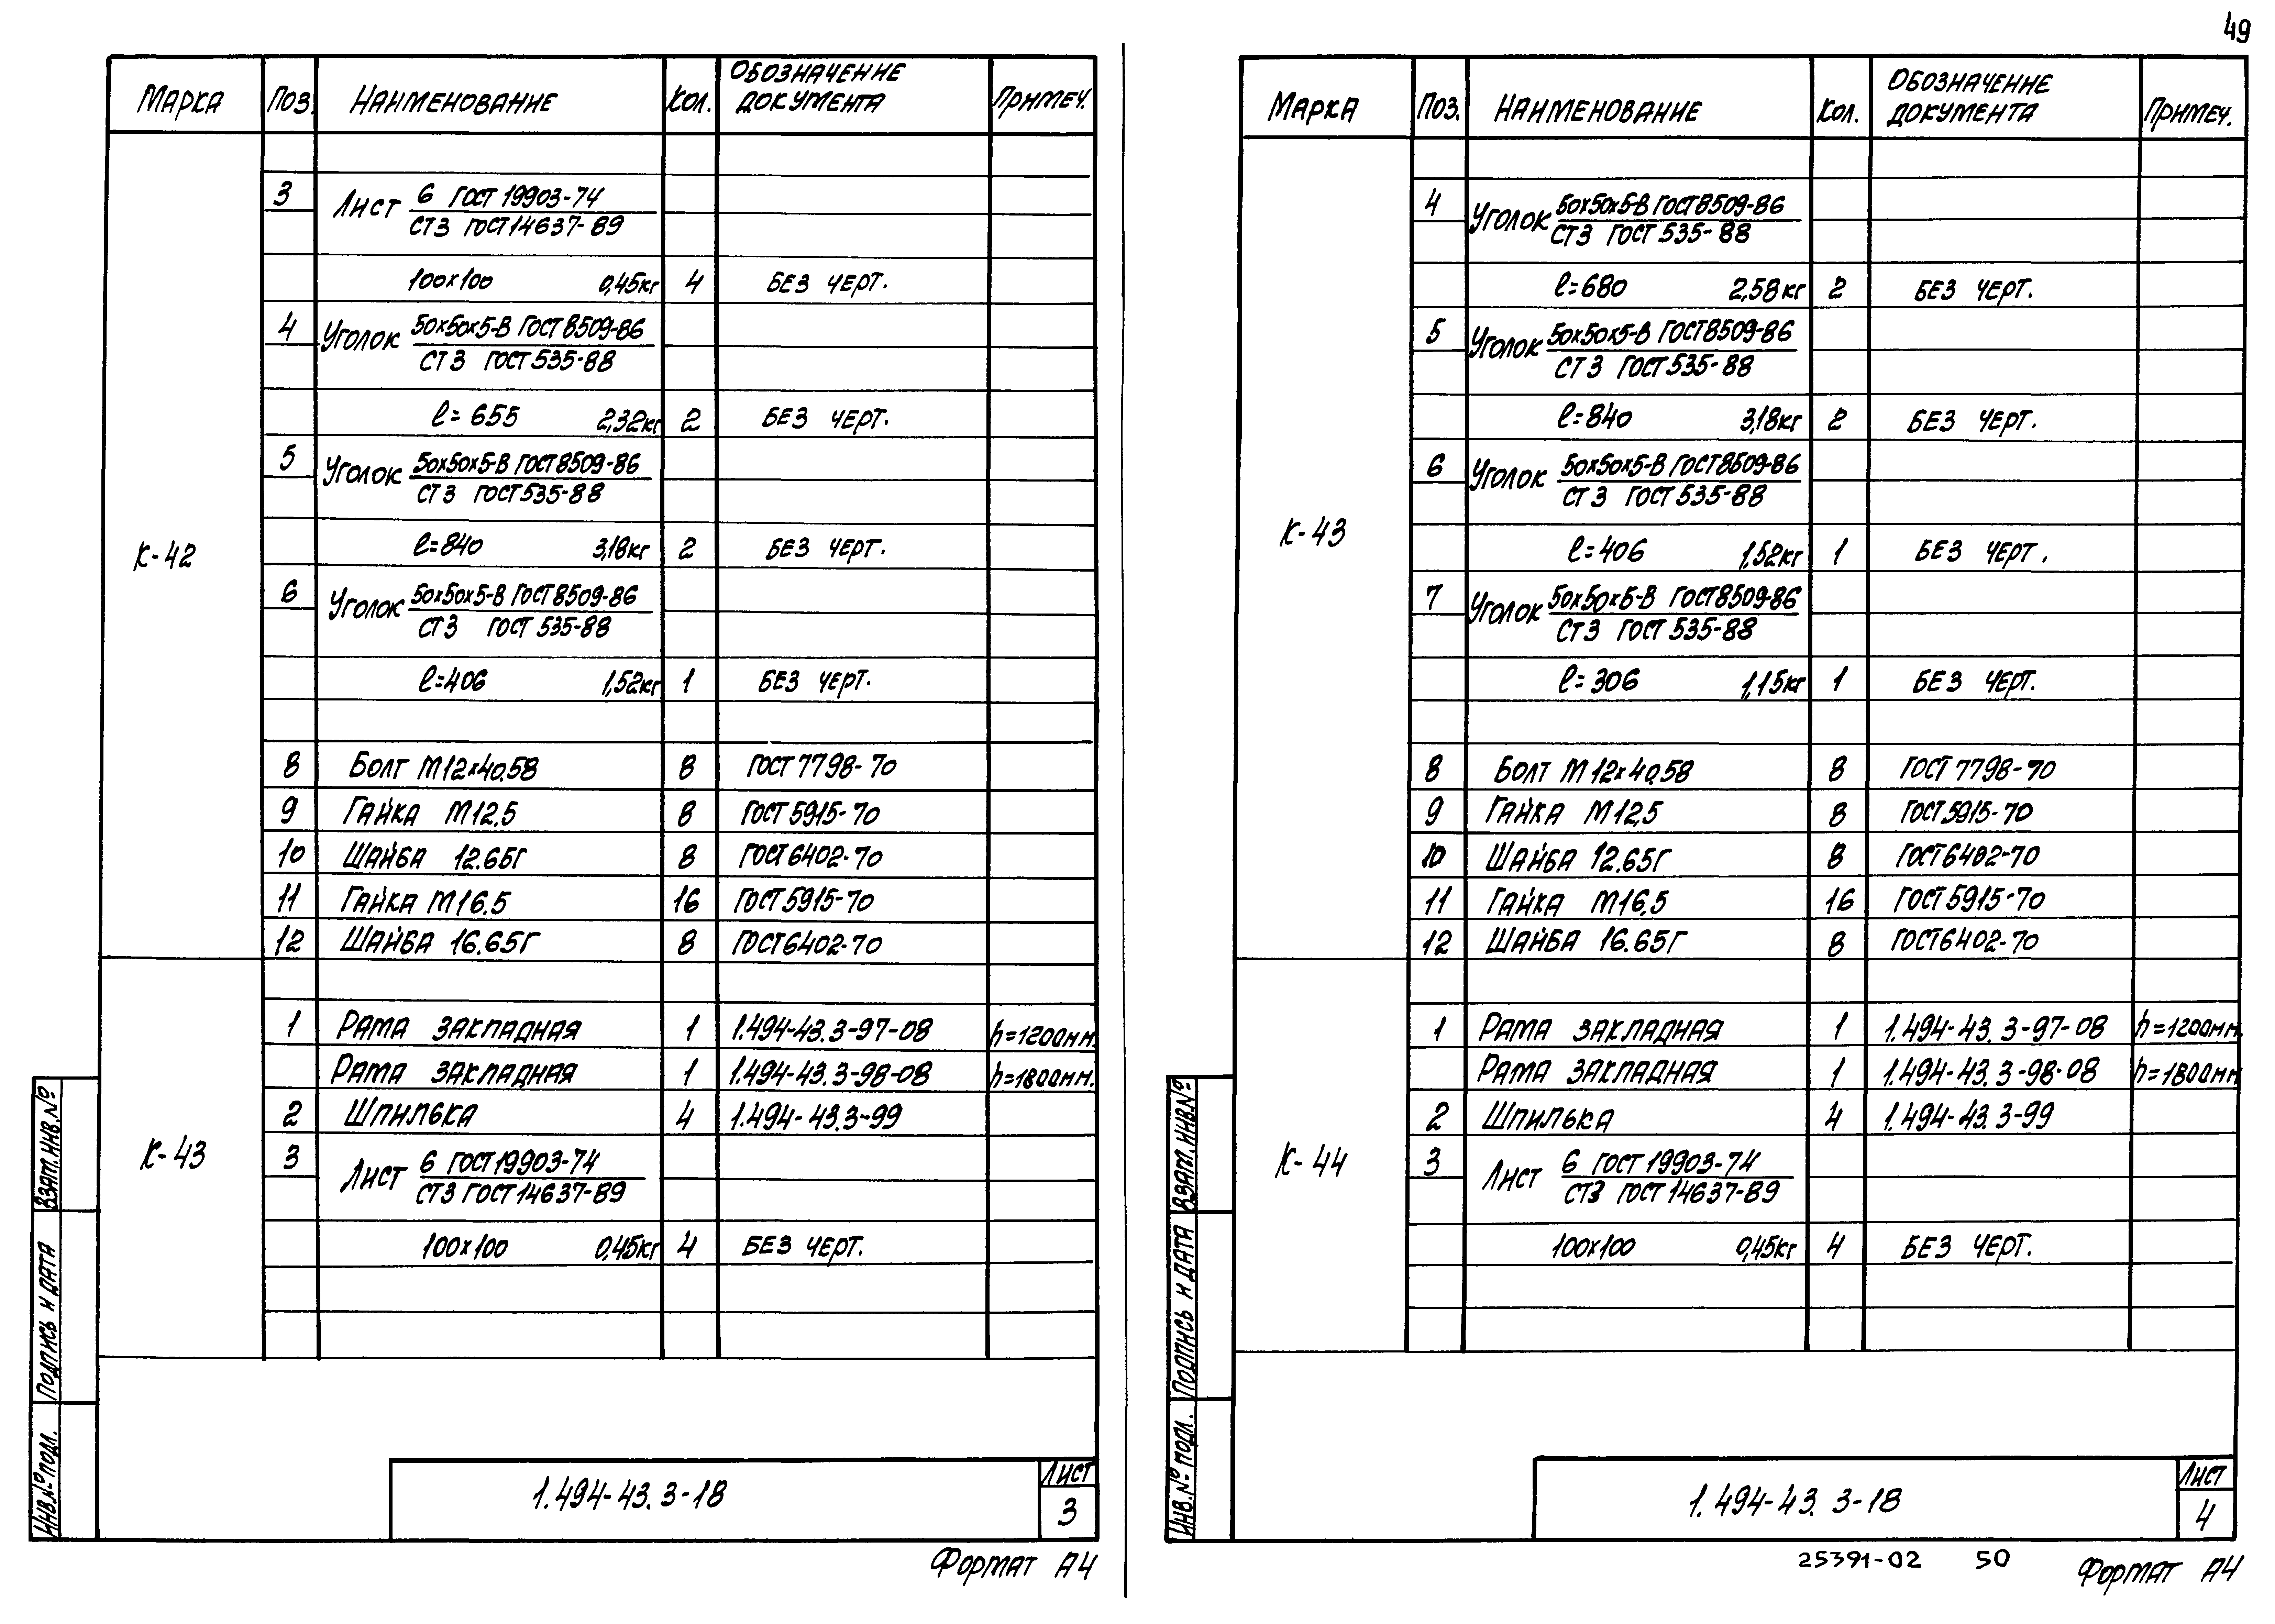 49
МАРКА ПОЗ. НАИМЕНОВАНИЕ КОЛ. ОБОЗНАЧЕНИЕ ДОКУМЕНТА ПРИМЕЧ.
К-42
3 ЛИСТ 6 ГОСТ 19903-74
СТ3 ГОСТ 14637-89
100х100 0,45кг 4 БЕЗ ЧЕРТ.
4 УГОЛОК 50х50х5-В ГОСТ 8509-86
СТ3 ГОСТ 535-88
ℓ=655 2,32кг 2 БЕЗ ЧЕРТ.
5 УГОЛОК 50х50х5-В ГОСТ 8509-86
СТ3 ГОСТ 535-88
ℓ=840 3,18кг 2 БЕЗ ЧЕРТ.
6 УГОЛОК 50х50х5-В ГОСТ 8509-86
СТ3 ГОСТ 535-88
ℓ=406 1,52кг 1 БЕЗ ЧЕРТ.
8 БОЛТ М12х40.58 8 ГОСТ 7798-70
9 ГАЙКА М12.5 8 ГОСТ 5915-70
10 ШАЙБА 12.65Г 8 ГОСТ 6402-70
11 ГАЙКА М16.5 16 ГОСТ 5915-70
12 ШАЙБА 16.65Г 8 ГОСТ 6402-70
К-43
1 РАМА ЗАКЛАДНАЯ 1 1.494-43.3-97-08 h=1200мм.
РАМА ЗАКЛАДНАЯ 1 1.494-43.3-98-08 h=1800мм.
2 ШПИЛЬКА 4 1.494-43.3-99
3 ЛИСТ 6 ГОСТ 19903-74
СТ3 ГОСТ 14637-89
100х100 0,45кг 4 БЕЗ ЧЕРТ.
ВЗАМ.ИНВ.№
ПОДПИСЬ И ДАТА
ИНВ.№ ПОДЛ.
1.494-43.3-18
ЛИСТ
3
ФОРМАТ А4
МАРКА ПОЗ. НАИМЕНОВАНИЕ КОЛ. ОБОЗНАЧЕНИЕ ДОКУМЕНТА ПРИМЕЧ.
К-43
4 УГОЛОК 50х50х5-В ГОСТ 8509-86
СТ3 ГОСТ 535-88
ℓ=680 2,58кг 2 БЕЗ ЧЕРТ.
5 УГОЛОК 50х50х5-В ГОСТ 8509-86
СТ3 ГОСТ 535-88
ℓ=840 3,18кг 2 БЕЗ ЧЕРТ.
6 УГОЛОК 50х50х5-В ГОСТ 8509-86
СТ3 ГОСТ 535-88
ℓ=406 1,52кг 1 БЕЗ ЧЕРТ.
7 УГОЛОК 50х50х5-В ГОСТ 8509-86
СТ3 ГОСТ 535-88
ℓ=306 1,15кг 1 БЕЗ ЧЕРТ.
8 БОЛТ М12х40.58 8 ГОСТ 7798-70
9 ГАЙКА М12,5 8 ГОСТ 5915-70
10 ШАЙБА 12.65Г 8 ГОСТ 6402-70
11 ГАЙКА М16,5 16 ГОСТ 5915-70
12 ШАЙБА 16.65Г 8 ГОСТ 6402-70
К-44
1 РАМА ЗАКЛАДНАЯ 1 1.494-43.3-97-08 h=1200мм.
РАМА ЗАКЛАДНАЯ 1 1.494-43.3-98-08 h=1800мм
2 ШПИЛЬКА 4 1.494-43.3-99
3 ЛИСТ 6 ГОСТ 19903-74
СТ3 ГОСТ 14637-89
100х100 0,45кг 4 БЕЗ ЧЕРТ.
ВЗАМ.ИНВ.№
ПОДПИСЬ И ДАТА
ИНВ.№ ПОДЛ.
1.494-43.3-18
ЛИСТ
4
25391-02 50 ФОРМАТ А4